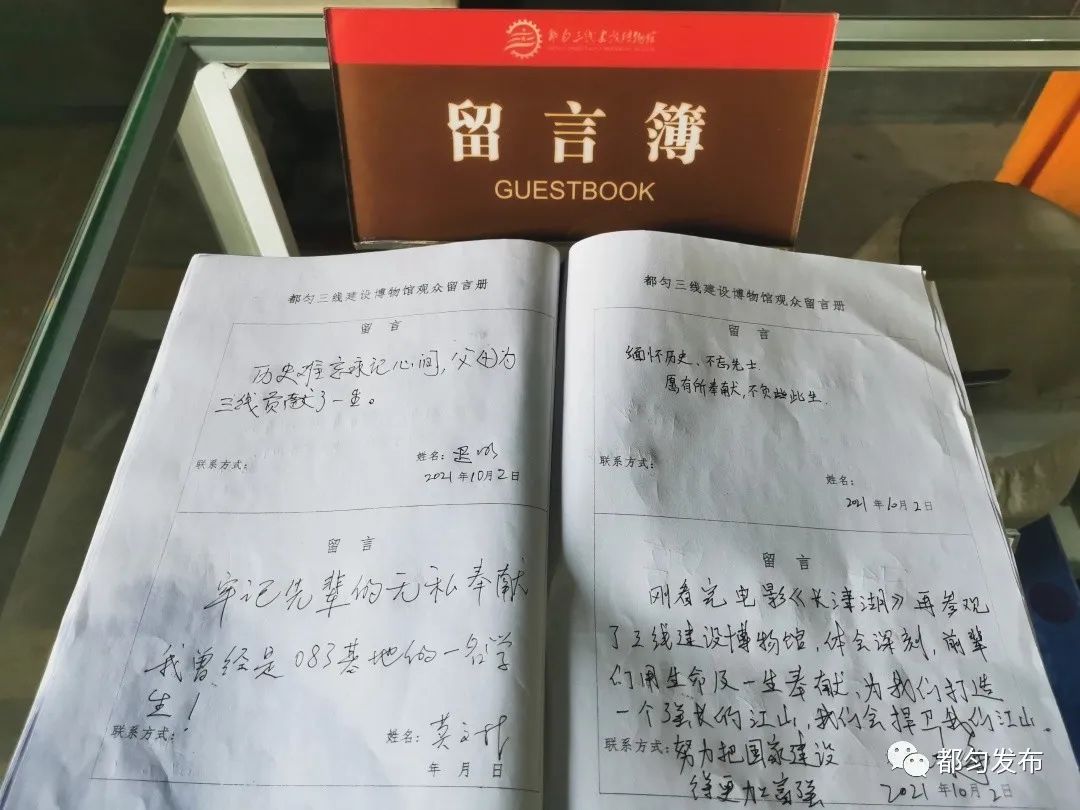 都匀三线建设博物馆
留言簿
GUESTBOOK
都匀三线建设博物馆观众留言册
留 言
历史难忘永记心间,父母为
三线贡献了一生。
联系方式:
姓名:
2021年10月2日
留 言
牢记先辈的无私奉献
我曾经是083基地的一名学
生!
联系方式:
姓名:
年 月 日
都匀三线建设博物馆观众留言册
留 言
缅怀历史、不忘先士.
愿有所奉献,不负此生.
联系方式:
姓名:
2021年10月2日
留 言
刚看完电影《长津湖》再参观
了三线建设博物馆,体会深刻,前辈
们用生命及一生奉献,为我们打造
一个强大的江山,我们会捍卫我们江山.
联系方式:努力把国家建设
得更加富强
2021年10月2日
都匀发布